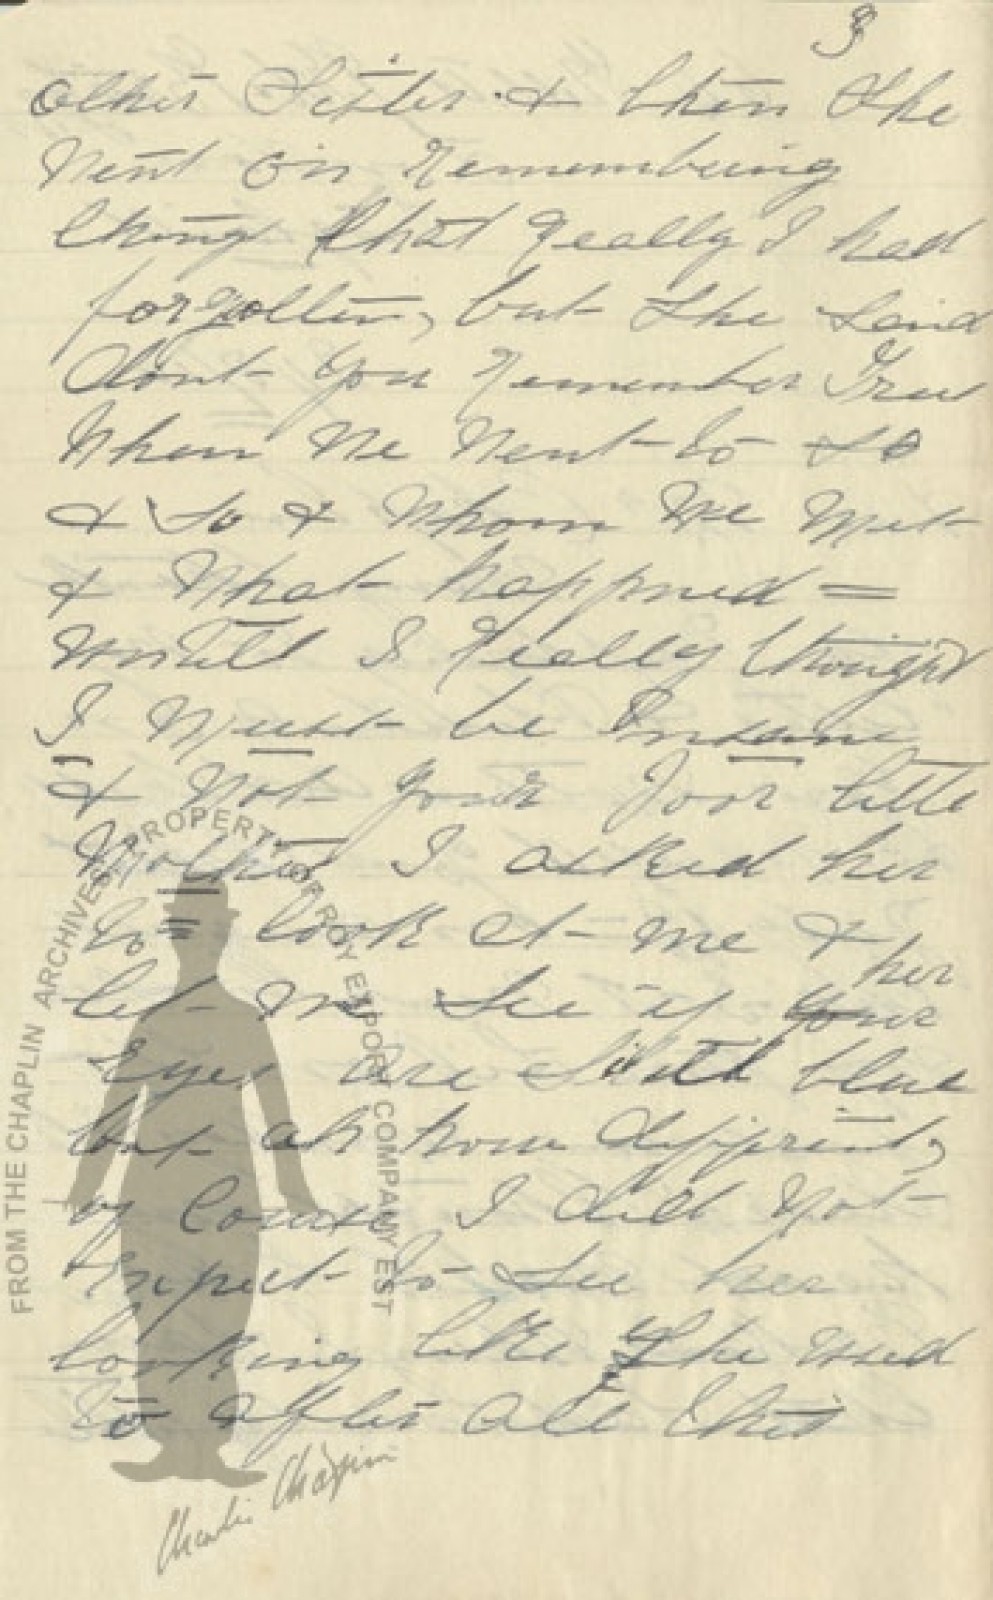 3
other Sister & then She
Went on Remembering
things that Really I had
forgotten, but She Said
dont You Remember
When We Went to So
& So & Whom We Met
& What happned =
untill I Really thought
I Must be Insane
& Not Your Poor little
Mother I asked her
to look at me &
her
let Me See if your
Eyes are Still blue
but ah how
of Course I did Not
Expect to See her
looking like She used
to After All this
FROM THE CHAPLIN ARCHIVES PROPERTY OF ROY EXPORT COMPANY EST
Charlie Chaplin